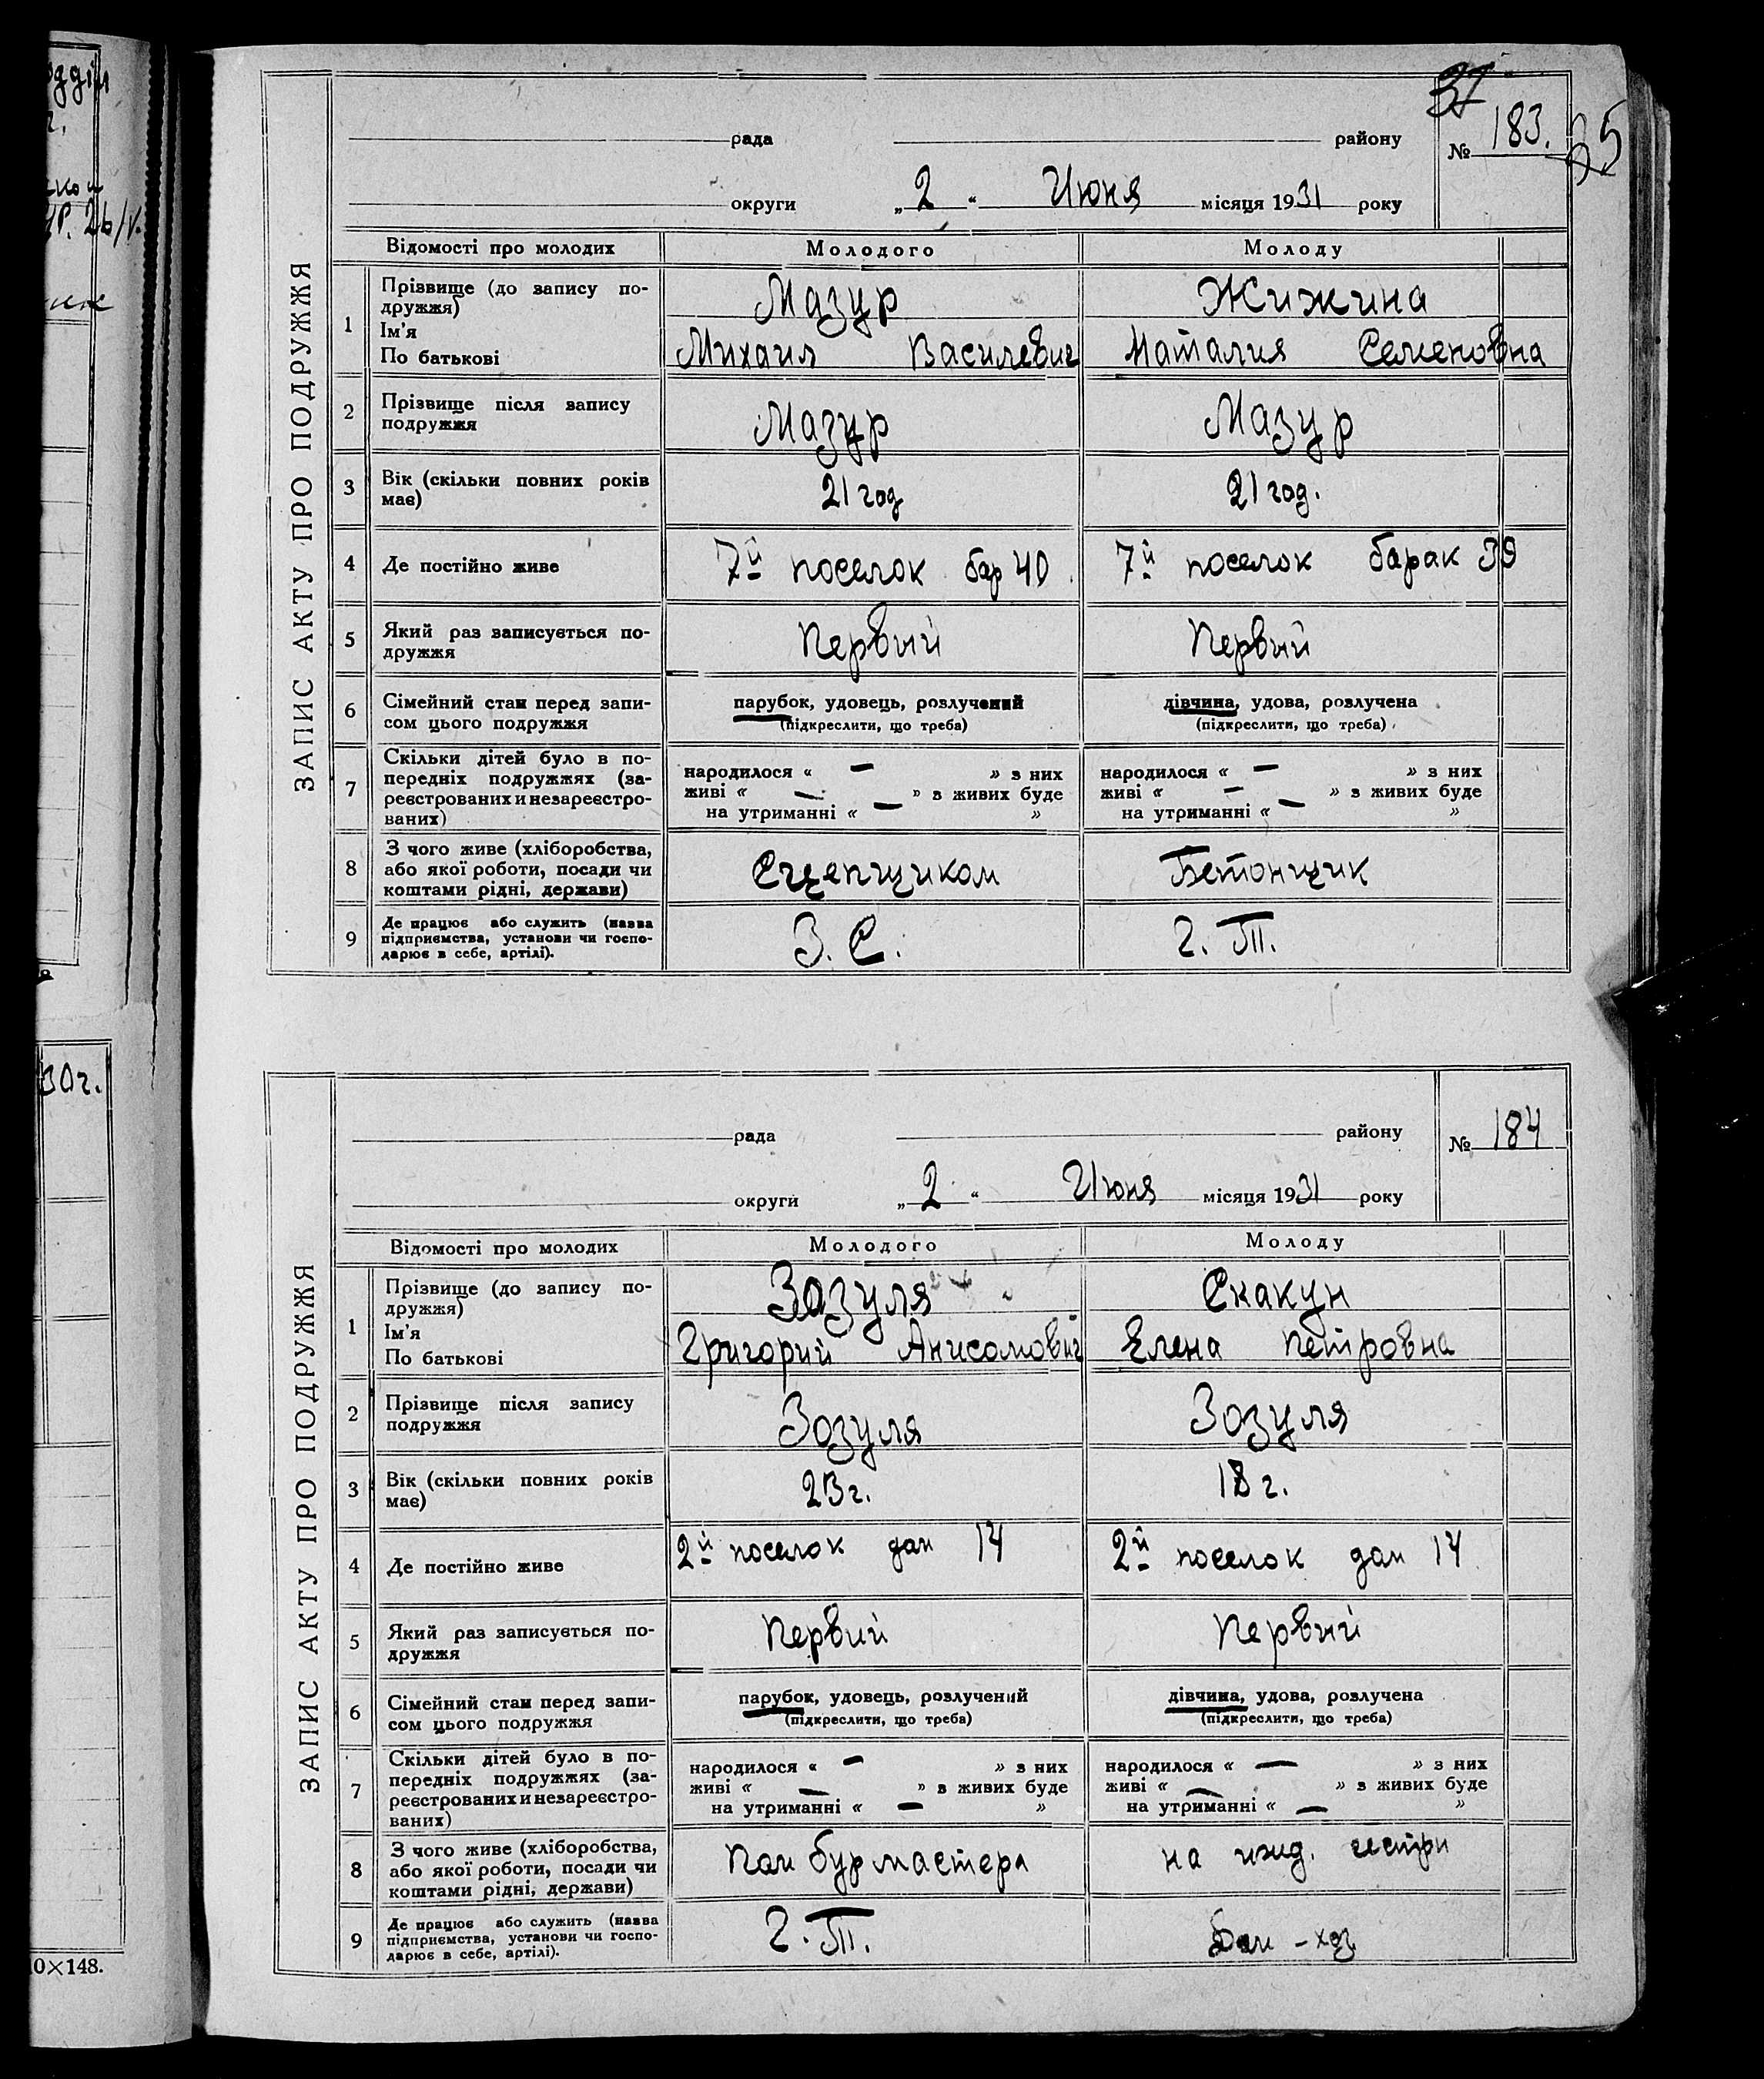 183.
рада району №
округи „ 2 “ Июня місяця 1931 року
ЗАПИС АКТУ ПРО ПОДРУЖЖЯ
Відомості про молодих Молодого Молоду
1 Прізвище (до запису по-
дружжя)
Ім’я
По батькові
Мазур
Михаил Василевич
Жижина
Наталия Семеновна
2 Прізвище після запису
подружжя
Мазур
Мазур
3 Вік (скільки повних років
має)
21 год
21 год.
4 Де постійно живе
7й поселок бар 40
7й поселок барак 39
5 Який раз записується по-
дружжя
Первый
Первый
6 Сімейний стан перед запи-
сом цього подружжя
парубок, удовець, розлучений
(підкреслити, що треба)
дівчина, удова, розлучена
(підкреслити, що треба)
7 Скільки дітей було в по-
передніх подружжях (за-
реєстрованих и незареєстро-
ваних)
народилося « — » з них
живі « — » з живих буде
на утриманні « — »
народилося « — » з них
живі « — » з живих буде
на утриманні « — »
8 З чого живе (хліборобства,
або якої роботи, посади чи
коштами рідні, держави)
Сцепщиком
Бетонщик
9 Де працює або служить (назва
підприємства, установи чи госпо-
дарює в себе, артілі).
З. С.
Г. П.
184
рада району №
округи „ 2 “ Июня місяця 1931 року
ЗАПИС АКТУ ПРО ПОДРУЖЖЯ
Відомості про молодих Молодого Молоду
1 Прізвище (до запису по-
дружжя)
Ім’я
По батькові
Зозуля
Григорий Анисомович
Скакун
Елена Петровна
2 Прізвище після запису
подружжя
Зозуля
Зозуля
3 Вік (скільки повних років
має)
23 г.
18 г.
4 Де постійно живе
2й поселок дом 14
2й поселок дом 14
5 Який раз записується по-
дружжя
Первий
Первый
6 Сімейний стан перед запи-
сом цього подружжя
парубок, удовець, розлучений
(підкреслити, що треба)
дівчина, удова, розлучена
(підкреслити, що треба)
7 Скільки дітей було в по-
передніх подружжях (за-
реєстрованих и незареєстро-
ваних)
народилося « — » з них
живі « — » з живих буде
на утриманні « — »
народилося « — » з них
живі « — » з живих буде
на утриманні « — »
8 З чого живе (хліборобства,
або якої роботи, посади чи
коштами рідні, держави)
Пом бурмастера
на ижд. сестри
9 Де працює або служить (назва
підприємства, установи чи госпо-
дарює в себе, артілі).
Г. П.
Дом-хоз
30г.
0×148.